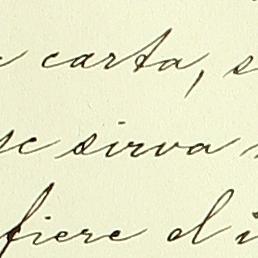 carta, s
se sirva
fiere el i